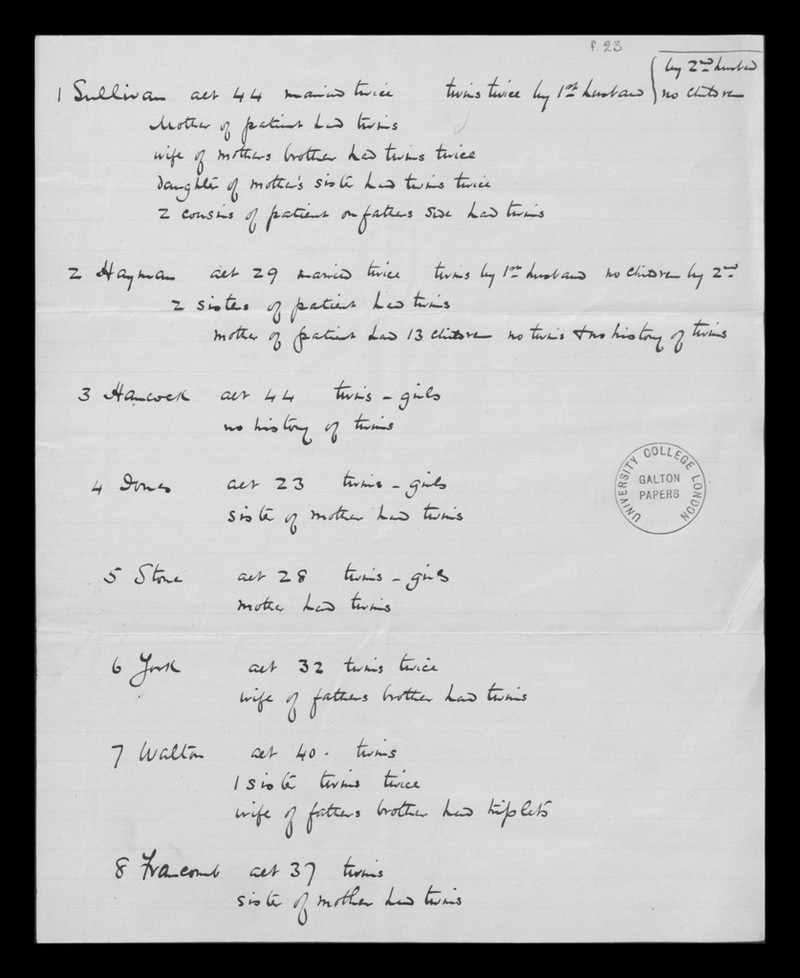 f. 23
1 Sullivan aet 44 married twice twins twice by 1st husband { by 2nd husband no children
Mother of patient had twins
wife of mothers brother had twins twice
daughter of mother's sister had twins twice
2 cousins of patient on fathers side had twins
2 Hayman aet 29 married twice twins by 1st husband no children by 2nd
2 sisters of patient had twins
mother of patient had 13 children no twins & no history of twins
3 Hancock aet 44 twins - girls
no history of twins
4 Jones aet 23 twins - girls
sister of mother had twins
UNIVERSITY COLLEGE LONDON
GALTON
PAPERS
5 Stone aet 28 twins - girls
mother had twins
6 York aet 32 twins twice
wife of fathers brother had twins
7 Walton aet 40 - twins
1 sister twins twice
wife of fathers brother had triplets
8 Francomb aet 37 twins
sister of mother had twins